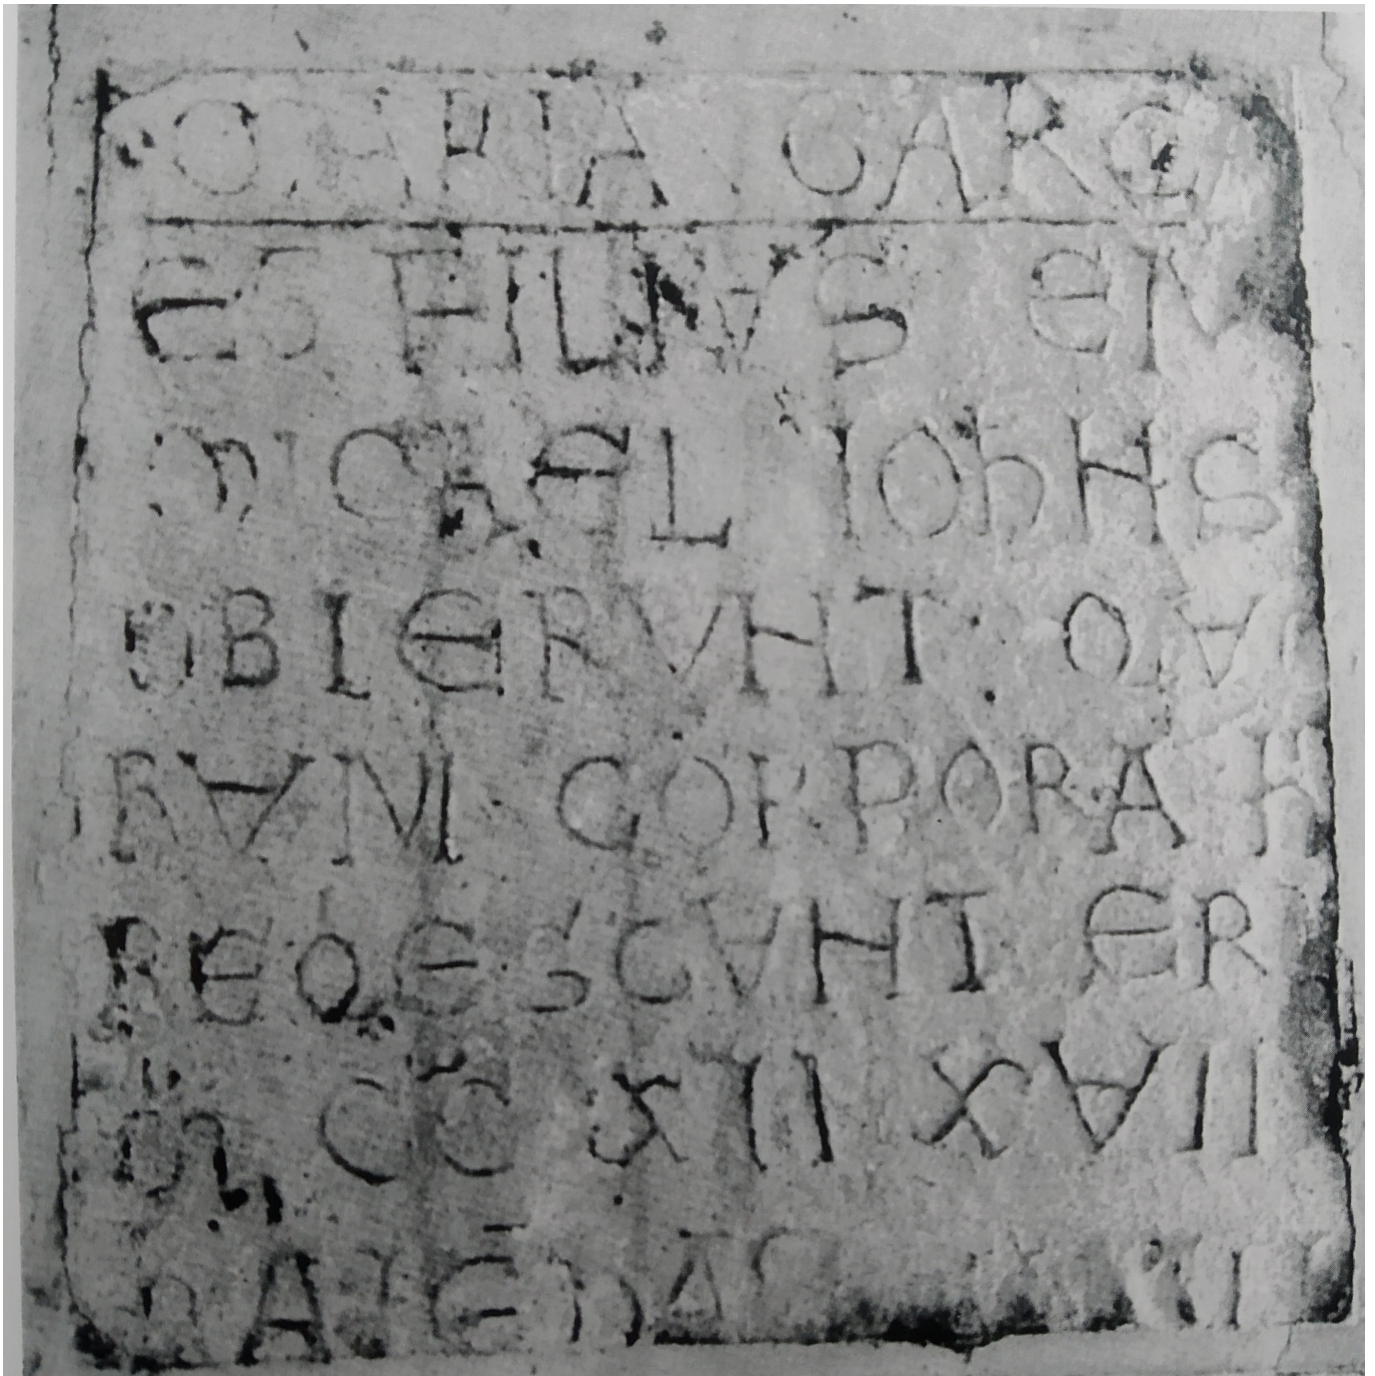 O MARIA GARC
ES FILIVS EIV
MICHAEL IOhHS
OBIERVHT : QVO
RVM CORPORA H
REQESCVHT ER
M CC XII XVII